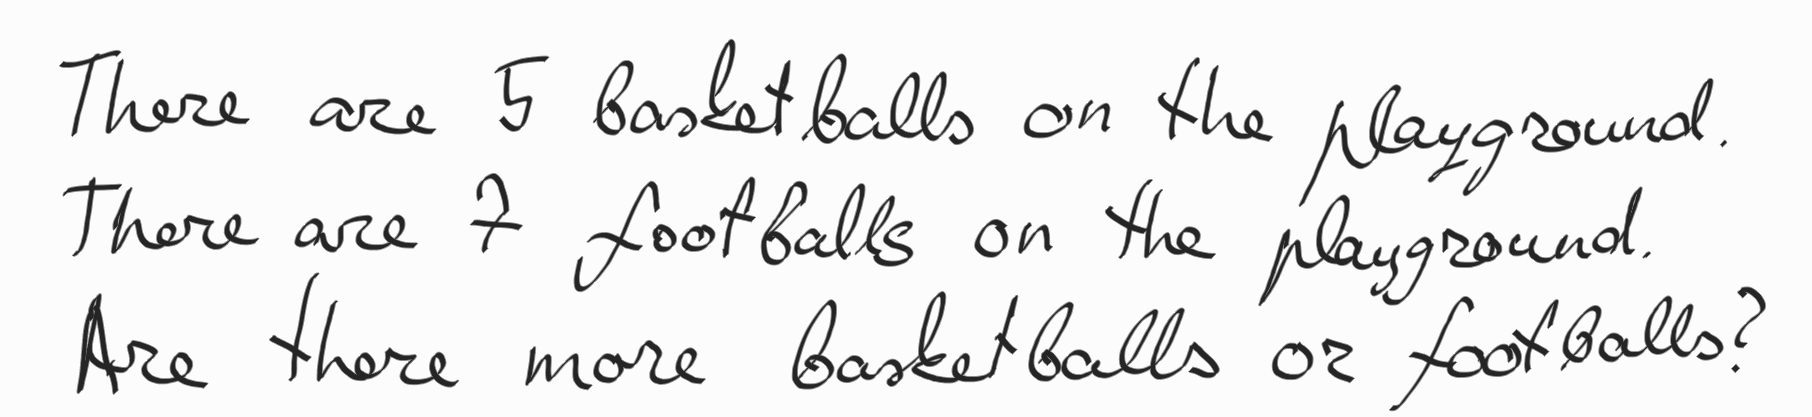 There are 5 basketballs on the playground.
There are 7 footballs on the playground.
Are there more basketballs or footballs?